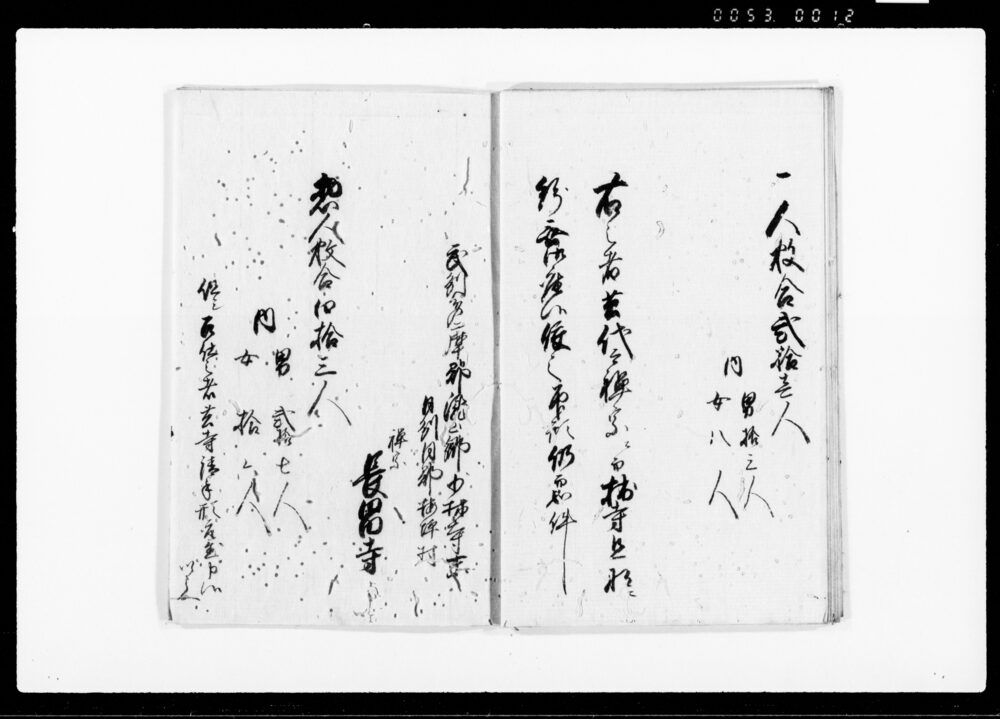 0053.0012
一人数合弐拾壱人
内
男拾三人
女八人
右之者共代々禅宗ニ而拙寺旦那ニ
紛無御座候後之手形仍而如件
武州多摩郡滝山郷少林寺末
同州同郡梅坪村
禅宗
長昌寺
惣人数合四拾三人
内
男弐拾七人
女拾六人
但シ右借之者共寺請手形
以上